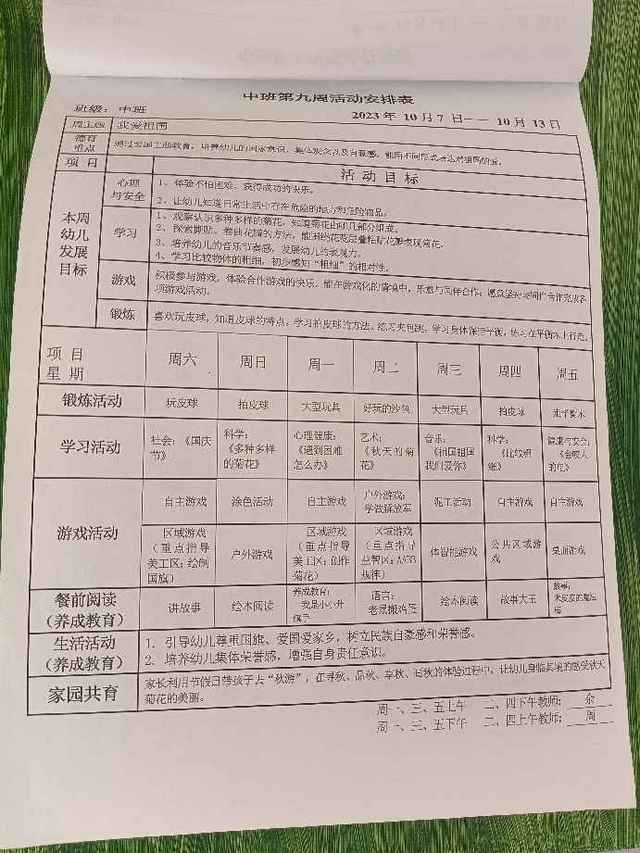 中班第九周活动安排表
班级：中班 2023 年 10 月 7 日-- 10 月 13 日
周主题 我爱祖国
德育重点
项 目 活 动 目 标
本周幼儿发展目标
心理与安全 1、体验不怕困难、获得成功的快乐。
2、让幼儿知道日常生活中存在危险的地方和危险物品。
学习 1、观察认识多种多样的菊花，知道菊花由哪几部分组成。
2、探索撕贴、卷曲花瓣的方法，
3、培养幼儿的音乐节奏感，发展幼儿的表现力。
4、学习比较物体的粗细，初步感知“粗细”的相对性。
游戏 积极参与游戏，体验合作游戏的快乐。能在游戏化的情境中，乐意与同伴合作；
项游戏活动。
锻炼 喜欢玩皮球，知道皮球的特点，学习拍皮球的方法。
项 目
星 期 周六 周日 周一 周二 周三 周四 周五
锻炼活动 玩皮球 拍皮球 大型玩具 好玩的沙包 大型玩具 拍皮球
学习活动 社会：《国庆节》 科学：《多种多样的菊花》 心理健康：《遇到困难怎么办》 艺术：《秋天的菊花》 音乐：《祖国祖国我们爱你》 科学：《比较粗细》 健康与安全：
游戏活动 自主游戏 涂色活动 自主游戏 户外游戏： 泥工活动 自主游戏 自主游戏
区域游戏（重点指导美工区：绘制国旗） 户外游戏 区域游戏（重点指导美工区：创作菊花） 区域游戏（重点指导益智区：ABB规律） 体智能游戏 公共区域游戏 桌面游戏
餐前阅读（养成教育） 讲故事 绘本阅读 养成教育： 语言：老鼠搬鸡蛋 绘本阅读 故事大王 故事：
生活活动（养成教育） 1. 引导幼儿尊重国旗、爱国爱家乡，树立民族自豪感和荣誉感。
2. 培养幼儿集体荣誉感，增强自身责任意识。
家园共育 家长利用节假日带孩子去“秋游”，在寻秋、品秋、享秋、画秋的体验过程中，让幼儿身临其境的感受秋天
菊花的美丽。
周一、三、五上午 二、四下午教师： 余
周一、三、五下午 二、四上午教师： 周